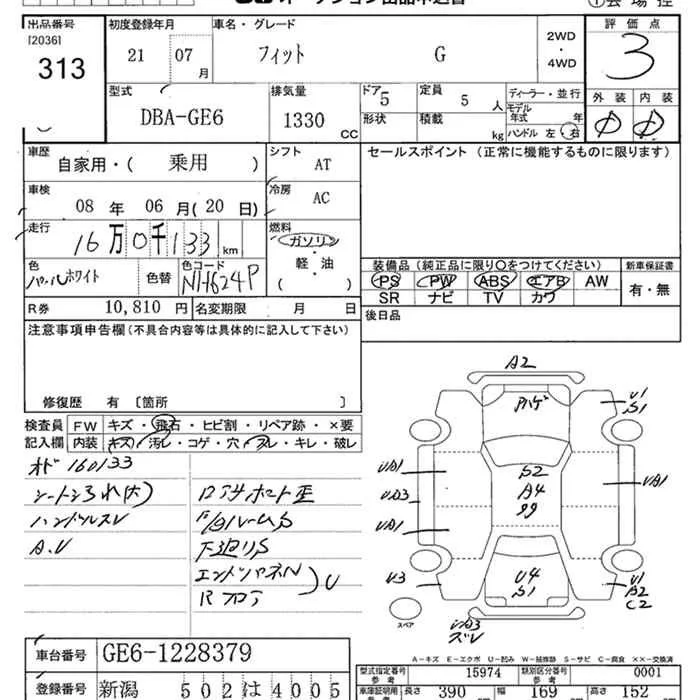 出品番号 初度登録年月 車名・グレード 評価点
[2036] 313 21 07月 フィット G 2WD・4WD 3
型式 排気量 ドア 定員 ディーラー・並行 外装 内装
DBA-GE6 1330cc 5 5人 モデル年式 年
形状 積載 kg ハンドル 左・右
車歴 シフト セールスポイント (正常に機能するものに限ります)
自家用・( 乗用 ) AT
車検 冷房
08年 06月(20日) AC
走行 燃料
16万0千133km ガソリン・軽・油 ( )
色 色替 色コード 装備品 (純正品に限り○をつけてください) 新車保証書
パールホワイト NH624P PS PW ABS エアB AW 有・無
SR ナビ TV カワ
R券 10,810円 名変期限 月 日 後日品
注意事項申告欄(不具合内容等は具体的に記入して下さい)
修復歴 有 [箇所 ]
検査員記入欄 FW キズ・飛石・ヒビ割・リペア跡・×要
内装 キズ・汚レ・コゲ・穴・スレ・キレ・破レ
オド 160133
ハンドルスレ
下廻りS
A2
ハゲ
U1
S1
UA1
U03
UA1
S2
A4
UA1
U3
U4
S1
U1
A2
C2
スペア
A-キズ E-エクボ U-凹み W-補修跡 S-サビ C-腐食 ××-交換済
車台番号 GE6-1228379
型式指定番号 15974 類別区分番号 0001
登録番号 新潟 502 は 4005
長さ 390 幅 169 高さ 152